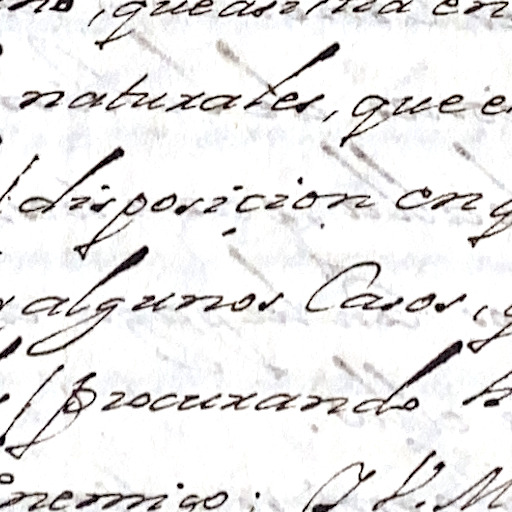 , que
naturales, que
disposicion en q
algunos Casos,
procurando
enemigo; V. M